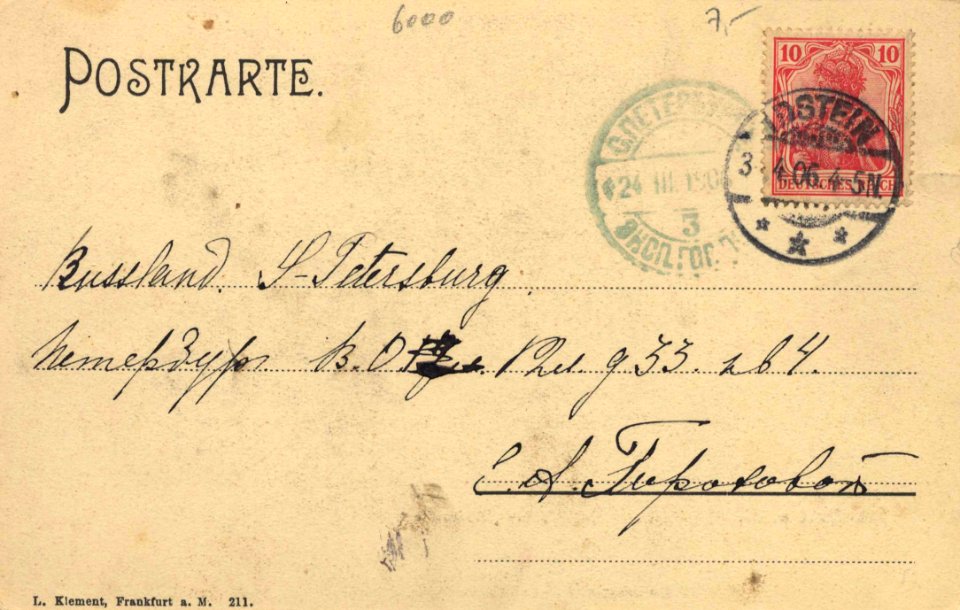 6000 7,-
POSTKARTE.
10 10
DEUTSCHES REICH
IDSTEIN
3 4.06. 4-5N.
С.ПЕТЕРБ
24 III 190
3
Russland. S-Petersburg
Петербург. В.О. 12 л. д 33. кв 4.
С. А. Гороховой
L. Klement, Frankfurt a. M. 211.